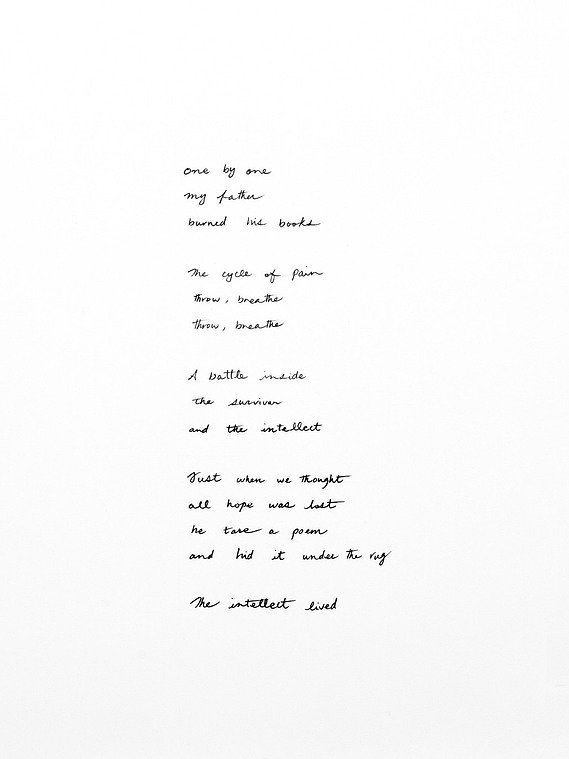 one by one
my father
burned his books
The cycle of pain
throw, breathe
throw, breathe
A battle inside
the survivor
and the intellect
Just when we thought
all hope was lost
he tore a poem
and hid it under the rug
The intellect lived